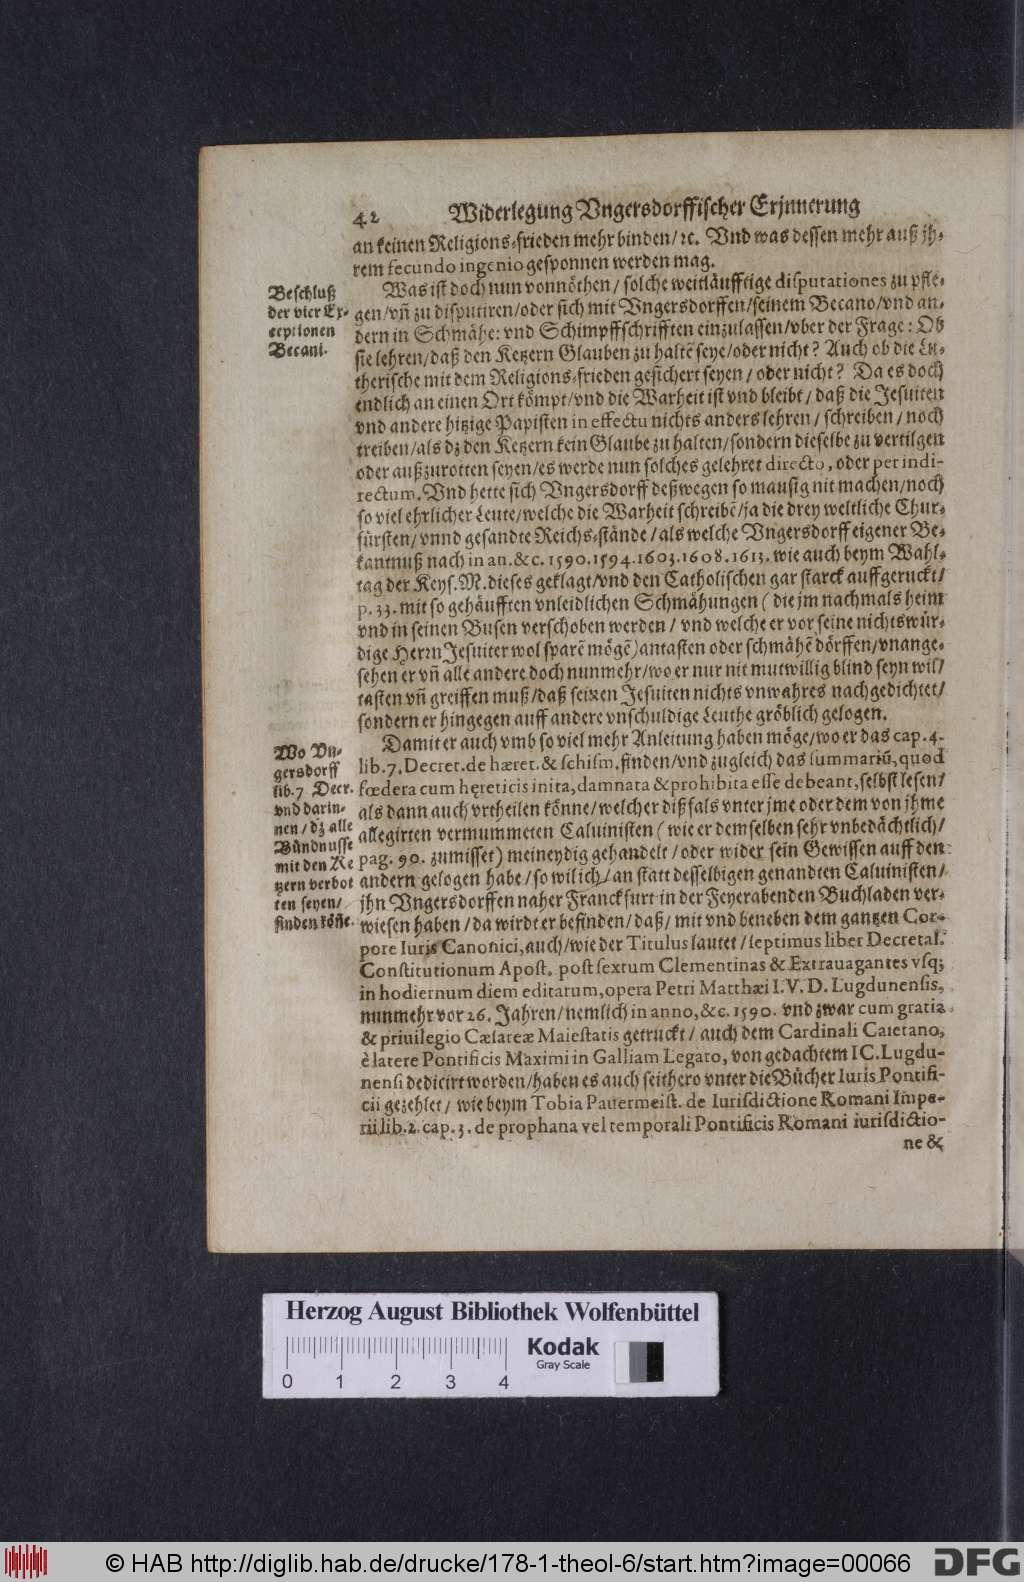 42 Widerlegung Vngersdorffischer Erjnnerung
an keinen Religions-frieden mehr binden/ ꝛc. Vnd was dessen mehr auß jh-
rem secundo ingenio gesponnen werden mag.
Beschluß
der vier Ex-
ceptionen
Becani.
Was ist doch nun vonnöthen/ solche weitläufftige disputationes zu pfle-
gen/ vñ zu disputiren/ oder sich mit Vngersdorffen/ seinem Becano/ vnd an-
dern in Schmähe: vnd Schimpffschrifften einzulassen/ vber der Frage: Ob
sie lehren/ daß den Ketzern Glauben zu haltẽ seye/ oder nicht? Auch ob die Lu-
therische mit dem Religions-frieden gesichert seyen/ oder nicht? Da es doch
endlich an einen Ort kömpt/ vnd die Warheit ist vnd bleibt/ daß die Jesuiten
vnd andere hitzige Papisten in effectu nichts anders lehren/ schreiben/ noch
treiben/ als dz den Ketzern kein Glaube zu halten/ sondern dieselbe zu vertilgen
oder außzurotten seyen/ es werde nun solches gelehret directo, oder per indi-
rectum. Vnd hette sich Vngersdorff deßwegen so mausig nit machen/ noch
so viel ehrlicher Leute/ welche die Warheit schreibẽ/ ja die drey weltliche Chur-
fürsten/ vnnd gesandte Reichs-stände/ als welche Vngersdorff eigener Be-
kantnuß nach in an. &c. 1590. 1594. 1603. 1608. 1613. wie auch beym Wahl-
tag der Keys. M. dieses geklagt/ vnd den Catholischen gar starck auffgeruckt/
p. 33. mit so gehäufften vnleidlichen Schmähungen ( die jm nachmals heim
vnd in seinen Busen verschoben werden/ vnd welche er vor seine nichtswür-
dige Herrn Jesuiter wol sparẽ mögẽ) antasten oder schmähẽ dörffen/ vnange-
sehen er vñ alle andere doch nunmehr/ wo er nur nit mutwillig blind seyn wil/
tasten vñ greiffen muß/ daß seinen Jesuiten nichts vnwahres nachgedichtet/
sondern er hingegen auff andere vnschuldige Leuthe gröblich gelogen.
Wo Vn-
gersdorff
lib. 7 Decr.
vnd darin-
nen/ dz alle
Bündnusse
mit den Ke
tzern verbot
ten seyen/
finden kön̄e.
Damit er auch vmb so viel mehr Anleitung haben möge/ wo er das cap. 4.
lib. 7. Decret. de hæret. & schism. finden/ vnd zugleich das summariũ, quod
fœdera cum hęreticis inita, damnata & prohibita esse debeant, selbst lesen/
als dann auch vrtheilen könne/ welcher dißfals vnter jme oder dem von jhme
allegirten vermummeten Caluinisten ( wie er demselben sehr vnbedächtlich/
pag. 90. zumisset) meineydig gehandelt/ oder wider sein Gewissen auff den
andern gelogen habe/ so wil ich/ an statt desselbigen genandten Caluinisten/
jhn Vngersdorffen naher Franckfurt in der Feyerabenden Buchladen ver-
wiesen haben/ da wirdt er befinden/ daß/ mit vnd beneben dem gantzen Cor-
pore Iuris Canonici, auch/ wie der Titulus lautet/ septimus liber Decretal.
Constitutionum Apost. post sextum Clementinas & Extrauagantes vsq;
in hodiernum diem editarum, opera Petri Matthæi I. V. D. Lugdunensis,
nunmehr vor 26. Jahren/ nemlich in anno, &c. 1590. vnd zwar cum gratia
& priuilegio Cæsareæ Maiestatis getruckt/ auch dem Cardinali Caietano,
è latere Pontificis Maximi in Galliam Legato, von gedachtem IC. Lugdu-
nensi dedicirt worden/ haben es auch seithero vnter die Bücher Iuris Pontifi-
cii gezehlet/ wie beym Tobia Pauermeist. de Iurisdictione Romani Impe-
rii lib. 2. cap. 3. de prophana vel temporali Pontificis Romani iurisdictio-
ne &
Herzog August Bibliothek Wolfenbüttel
0 1 2 3 4
Kodak
Gray Scale
© HAB http://diglib.hab.de/drucke/178-1-theol-6/start.htm?image=00066
DFG